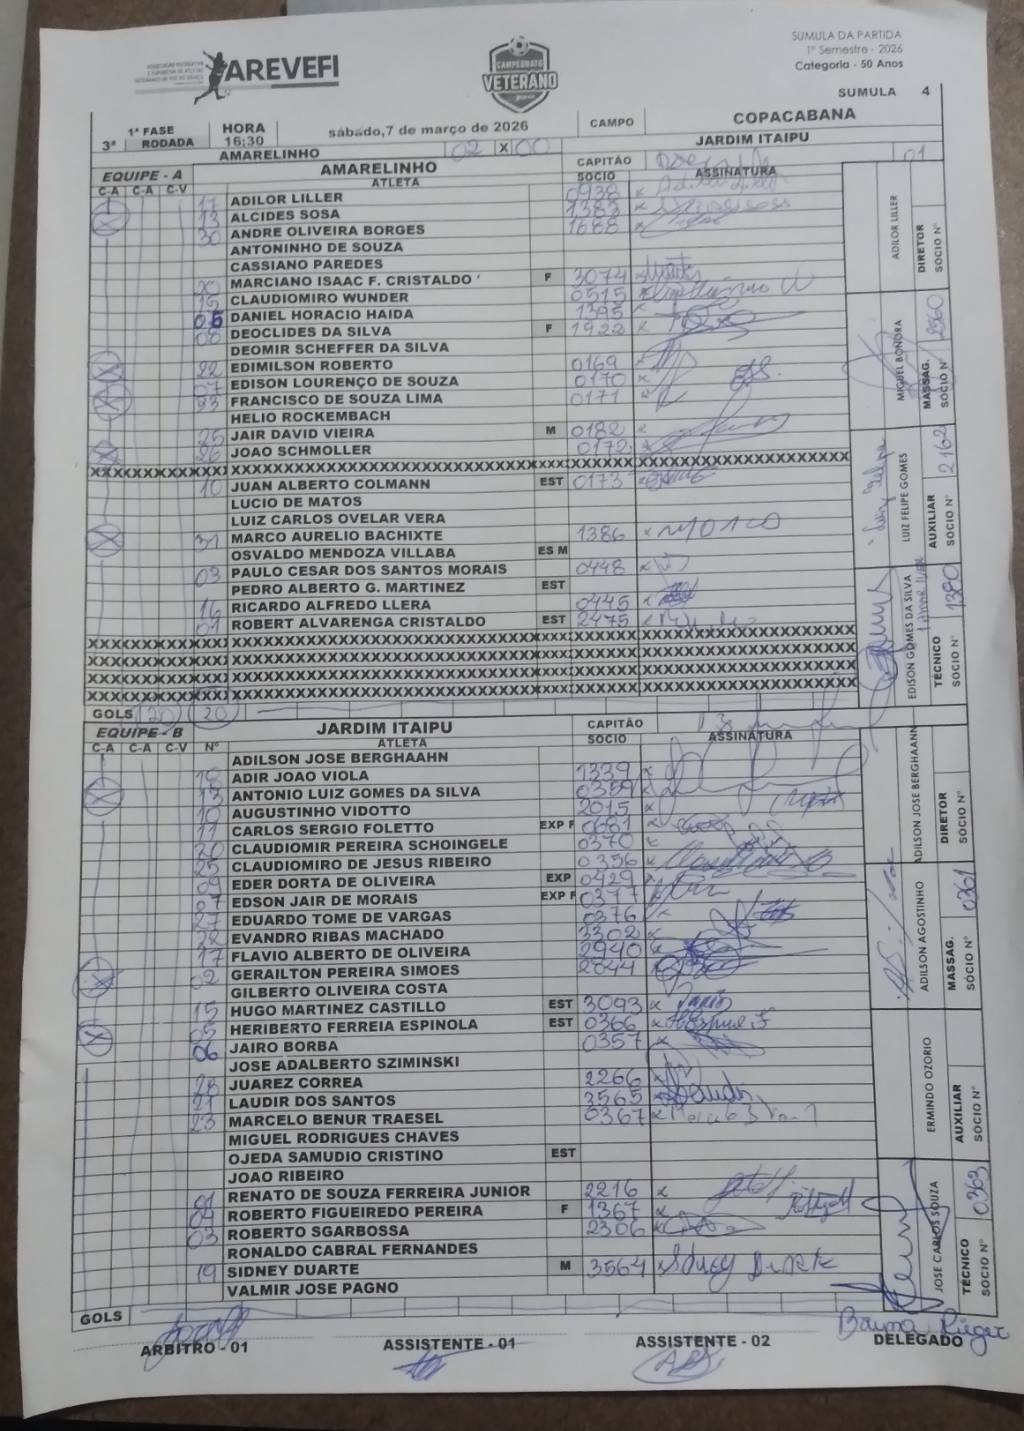 SUMULA DA PARTIDA
1º Semestre - 2026
Categoria - 50 Anos
AREVEFI
CAMPEONATO
VETERANO
SUMULA 4
1ª FASE HORA sábado,7 de março de 2026 CAMPO COPACABANA
3ª RODADA 16:30
AMARELINHO 02 X 00 JARDIM ITAIPU
EQUIPE - A AMARELINHO CAPITÃO 01
C-A C-A C-V ATLETA SOCIO ASSINATURA
17 ADILOR LILLER 0938
13 ALCIDES SOSA 1383
30 ANDRE OLIVEIRA BORGES 1688
ANTONINHO DE SOUZA
CASSIANO PAREDES
20 MARCIANO ISAAC F. CRISTALDO F 3074
15 CLAUDIOMIRO WUNDER 0515
05 DANIEL HORACIO HAIDA 1395
08 DEOCLIDES DA SILVA F 1922
DEOMIR SCHEFFER DA SILVA
22 EDIMILSON ROBERTO 0169
27 EDISON LOURENÇO DE SOUZA 0170
23 FRANCISCO DE SOUZA LIMA 0171
HELIO ROCKEMBACH
25 JAIR DAVID VIEIRA M 0182
26 JOAO SCHMOLLER 0172
XXXXXXXXXXXXXXXXXXXXXXXXXXXXXXXXXXXXXXXXXXXXXXXXXXXXXXXXXXXXXXXXX
10 JUAN ALBERTO COLMANN EST 0173
LUCIO DE MATOS
LUIZ CARLOS OVELAR VERA
31 MARCO AURELIO BACHIXTE 1386 x MARCO
OSVALDO MENDOZA VILLABA ES M
03 PAULO CESAR DOS SANTOS MORAIS 0448
PEDRO ALBERTO G. MARTINEZ EST
16 RICARDO ALFREDO LLERA 0445
09 ROBERT ALVARENGA CRISTALDO EST 2475
XXXXXXXXXXXXXXXXXXXXXXXXXXXXXXXXXXXXXXXXXXXXXXXXXXXXXXXXXXXXXXXXX
XXXXXXXXXXXXXXXXXXXXXXXXXXXXXXXXXXXXXXXXXXXXXXXXXXXXXXXXXXXXXXXXX
XXXXXXXXXXXXXXXXXXXXXXXXXXXXXXXXXXXXXXXXXXXXXXXXXXXXXXXXXXXXXXXXX
XXXXXXXXXXXXXXXXXXXXXXXXXXXXXXXXXXXXXXXXXXXXXXXXXXXXXXXXXXXXXXXXX
GOLS 20 20
ADILOR LILLER
DIRETOR
SOCIO Nº
MIGUEL BONORA
MASSAG.
SOCIO Nº 2560
LUIZ FELIPE GOMES
AUXILIAR
SOCIO Nº 2162
EDISON GOMES DA SILVA
TÉCNICO
SOCIO Nº 1380
EQUIPE - B JARDIM ITAIPU CAPITÃO 13
C-A C-A C-V Nº ATLETA SOCIO ASSINATURA
ADILSON JOSE BERGHAAHN
18 ADIR JOAO VIOLA 1339
13 ANTONIO LUIZ GOMES DA SILVA 0359
10 AUGUSTINHO VIDOTTO 2015
11 CARLOS SERGIO FOLETTO EXP F 0681
20 CLAUDIOMIR PEREIRA SCHOINGELE 0370
25 CLAUDIOMIRO DE JESUS RIBEIRO 0356
09 EDER DORTA DE OLIVEIRA EXP 0429
07 EDSON JAIR DE MORAIS EXP F 0377
27 EDUARDO TOME DE VARGAS 0376
22 EVANDRO RIBAS MACHADO 3302
17 FLAVIO ALBERTO DE OLIVEIRA 2940
02 GERAILTON PEREIRA SIMOES 2844
GILBERTO OLIVEIRA COSTA
15 HUGO MARTINEZ CASTILLO EST 3093
05 HERIBERTO FERREIA ESPINOLA EST 0366
06 JAIRO BORBA 0357
JOSE ADALBERTO SZIMINSKI
28 JUAREZ CORREA 2266
21 LAUDIR DOS SANTOS 3565
23 MARCELO BENUR TRAESEL 0367
MIGUEL RODRIGUES CHAVES
OJEDA SAMUDIO CRISTINO EST
JOAO RIBEIRO
01 RENATO DE SOUZA FERREIRA JUNIOR 2216
04 ROBERTO FIGUEIREDO PEREIRA F 1367
03 ROBERTO SGARBOSSA 2306
RONALDO CABRAL FERNANDES
19 SIDNEY DUARTE M 3564 Sidney Duarte
VALMIR JOSE PAGNO
GOLS
ADILSON JOSE BERGHAANN
DIRETOR
SOCIO Nº
ADILSON AGOSTINHO
MASSAG.
SÓCIO Nº 0361
ERMINDO OZORIO
AUXILIAR
SOCIO Nº
JOSE CARLOS SOUZA
TÉCNICO
SOCIO Nº 0363
Bruna Rieger
ARBITRO - 01 ASSISTENTE - 01 ASSISTENTE - 02 DELEGADO